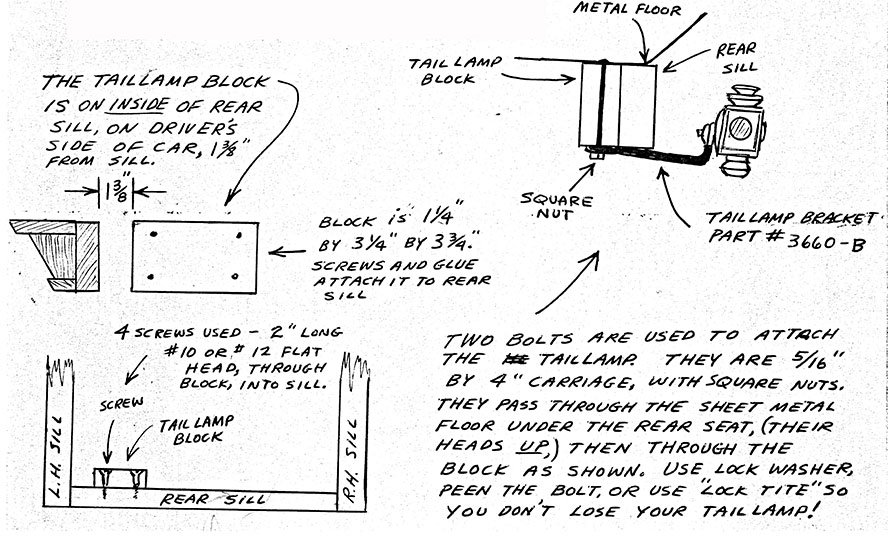 THE TAILLAMP BLOCK
IS ON INSIDE OF REAR
SILL, ON DRIVER'S
SIDE OF CAR, 1 3/8"
FROM SILL.
1 3/8"
BLOCK IS 1 1/4"
BY 3 1/4" BY 3 3/4."
SCREWS AND GLUE
ATTACH IT TO REAR
SILL
4 SCREWS USED - 2" LONG
#10 OR #12 FLAT
HEAD, THROUGH
BLOCK, INTO SILL.
SCREW
TAILLAMP
BLOCK
L.H. SILL
R.H. SILL
REAR SILL
METAL FLOOR
TAILLAMP
BLOCK
REAR
SILL
SQUARE
NUT
TAILLAMP BRACKET
PART # 3660-B
TWO BOLTS ARE USED TO ATTACH
THE TAILLAMP. THEY ARE 5/16"
BY 4" CARRIAGE, WITH SQUARE NUTS.
THEY PASS THROUGH THE SHEET METAL
FLOOR UNDER THE REAR SEAT, (THEIR
HEADS UP,) THEN THROUGH THE
BLOCK AS SHOWN. USE LOCK WASHER,
PEEN THE BOLT, OR USE "LOCK TITE" SO
YOU DON'T LOSE YOUR TAILLAMP!